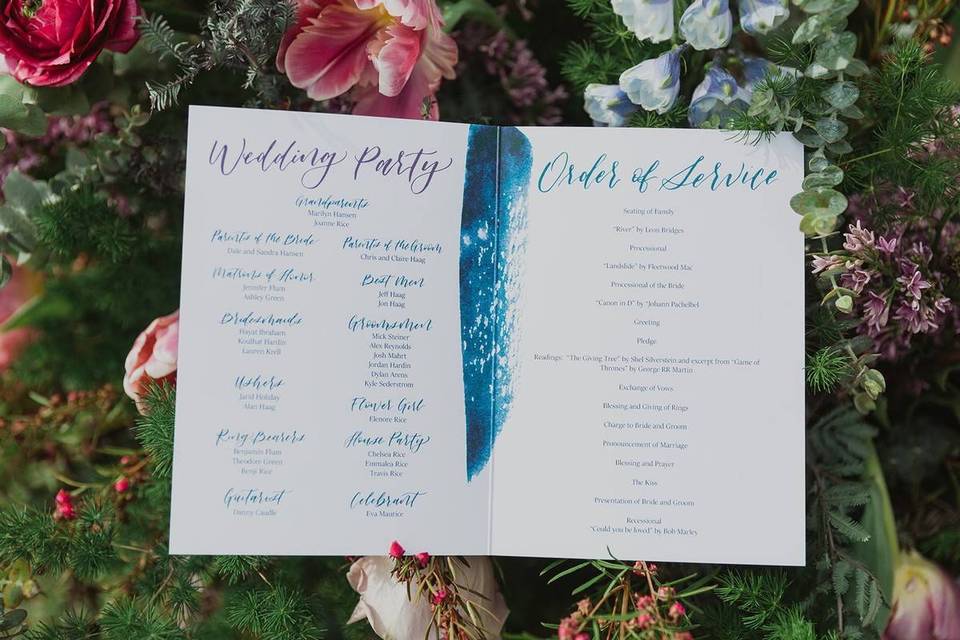 Wedding Party
Grandparents
Marilyn Hansen
Joanne Rice
Parents of the Bride
Dale and Sandra Hansen
Matrons of Honor
Jennifer Flum
Ashley Green
Bridesmaids
Hayat Ibraham
Koulhat Hardin
Lauren Krell
Ushers
Jarid Holiday
Alan Haag
Ring Bearers
Benjamin Flum
Theodore Green
Benji Rice
Guitarist
Danny Caudle
Parents of the Groom
Chris and Claire Haag
Best Men
Jeff Haag
Jon Haag
Groomsmen
Mick Steiner
Alex Reynolds
Josh Mahrt
Jordan Hardin
Dylan Arens
Kyle Sederstrom
Flower Girl
Elenore Rice
House Party
Chelsea Rice
Emmalea Rice
Travis Rice
Celebrant
Eva Maurice
Order of Service
Seating of Family
"River" by Leon Bridges
Processional
"Landslide" by Fleetwood Mac
Processional of the Bride
"Canon in D" by "Johann Pachelbel
Greeting
Pledge
Readings: "The Giving Tree" by Shel Silverstein and excerpt from "Game of
Thrones" by George RR Martin
Exchange of Vows
Blessing and Giving of Rings
Charge to Bride and Groom
Pronouncement of Marriage
Blessing and Prayer
The Kiss
Presentation of Bride and Groom
Recessional
"Could you be loved" by Bob Marley